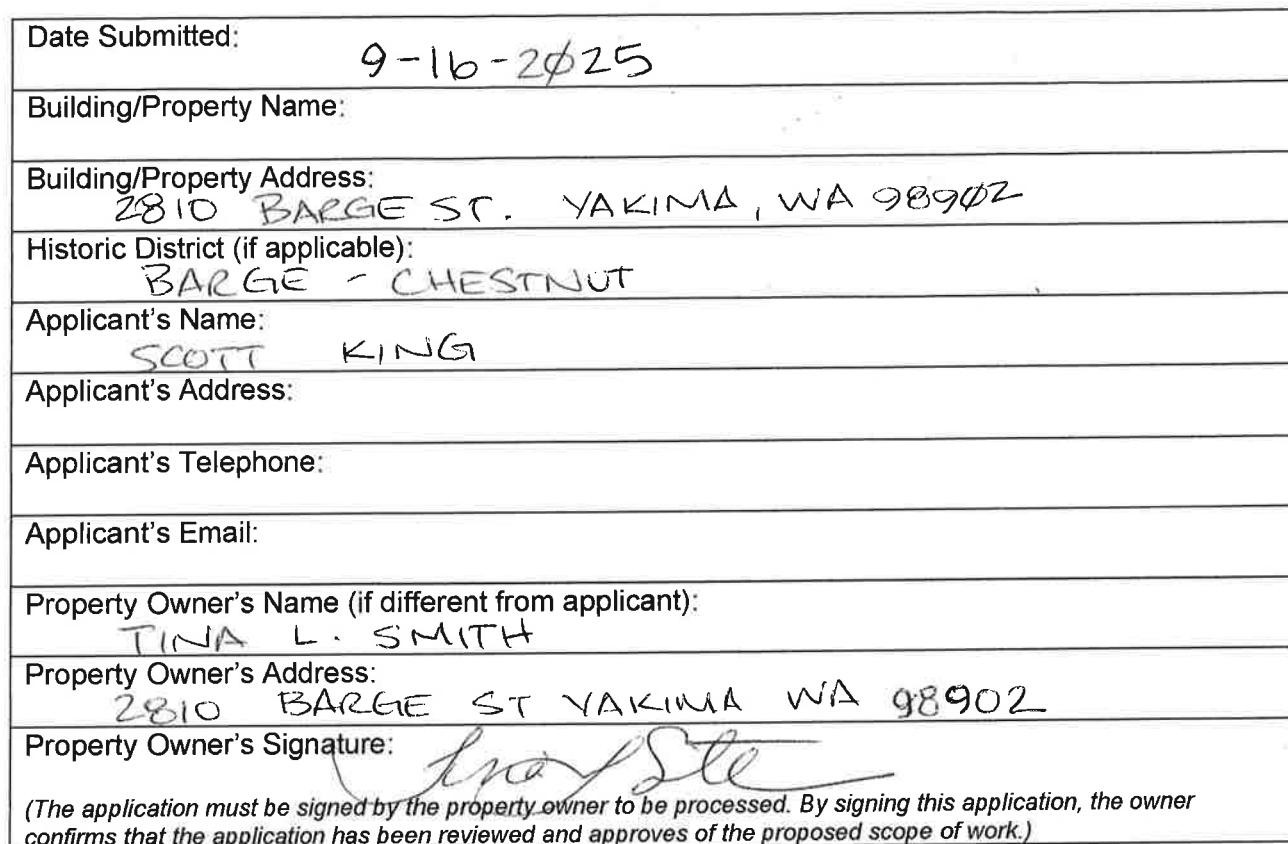 Date Submitted:
9-16-2025
Building/Property Name:
Building/Property Address:
2810 BARGE ST. YAKIMA, WA 98902
Historic District (if applicable):
BARGE - CHESTNUT
Applicant's Name:
SCOTT KING
Applicant's Address:
Applicant's Telephone:
Applicant's Email:
Property Owner's Name (if different from applicant):
TINA L. SMITH
Property Owner's Address:
2810 BARGE ST YAKIMA WA 98902
Property Owner's Signature:
(The application must be signed by the property owner to be processed. By signing this application, the owner
confirms that the application has been reviewed and approves of the proposed scope of work.)